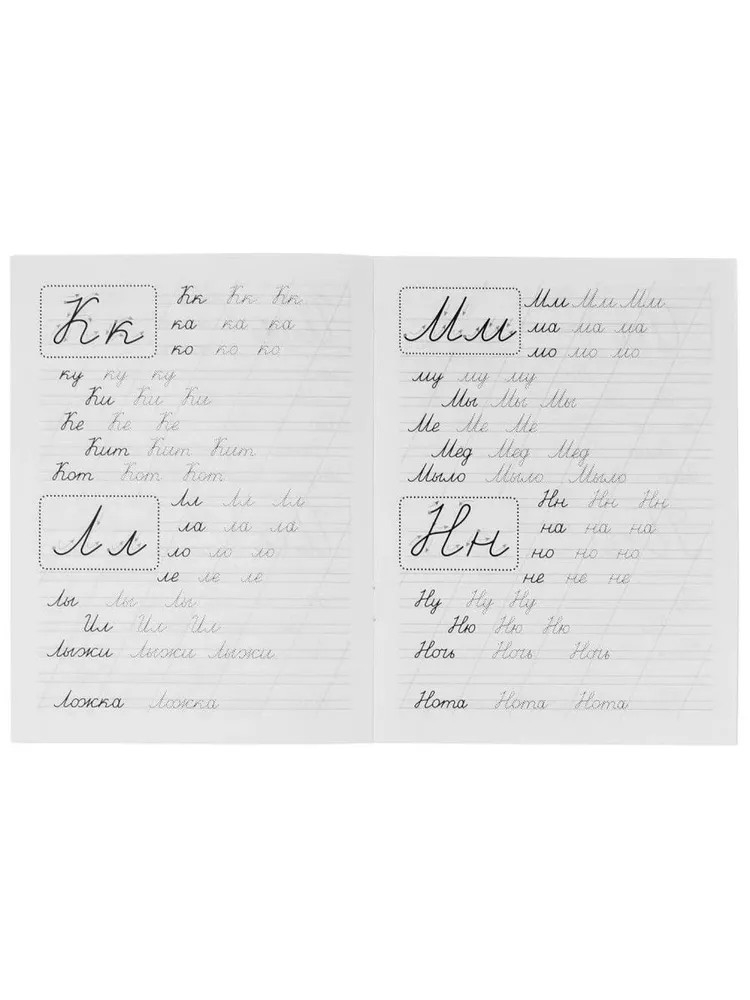 Кк Кк Кк Кк
ка ка ка
ко ко ко
ку ку ку
Ки Ки Ки
Ке Ке Ке
Кит Кит Кит
Кот Кот Кот
Лл Лл Лл Лл
ла ла ла
ло ло ло
ле ле ле
Лы Лы Лы
Ил Ил Ил
Лыжи Лыжи Лыжи
Ложка Ложка
Мм Мм Мм Мм
ма ма ма
мо мо мо
му му му
Мы Мы Мы
Ме Ме Ме
Мед Мед Мед
Мыло Мыло Мыло
Нн Нн Нн Нн
на на на
но но но
не не не
Ну Ну Ну
Ню Ню Ню
Ночь Ночь Ночь
Нота Нота Нота